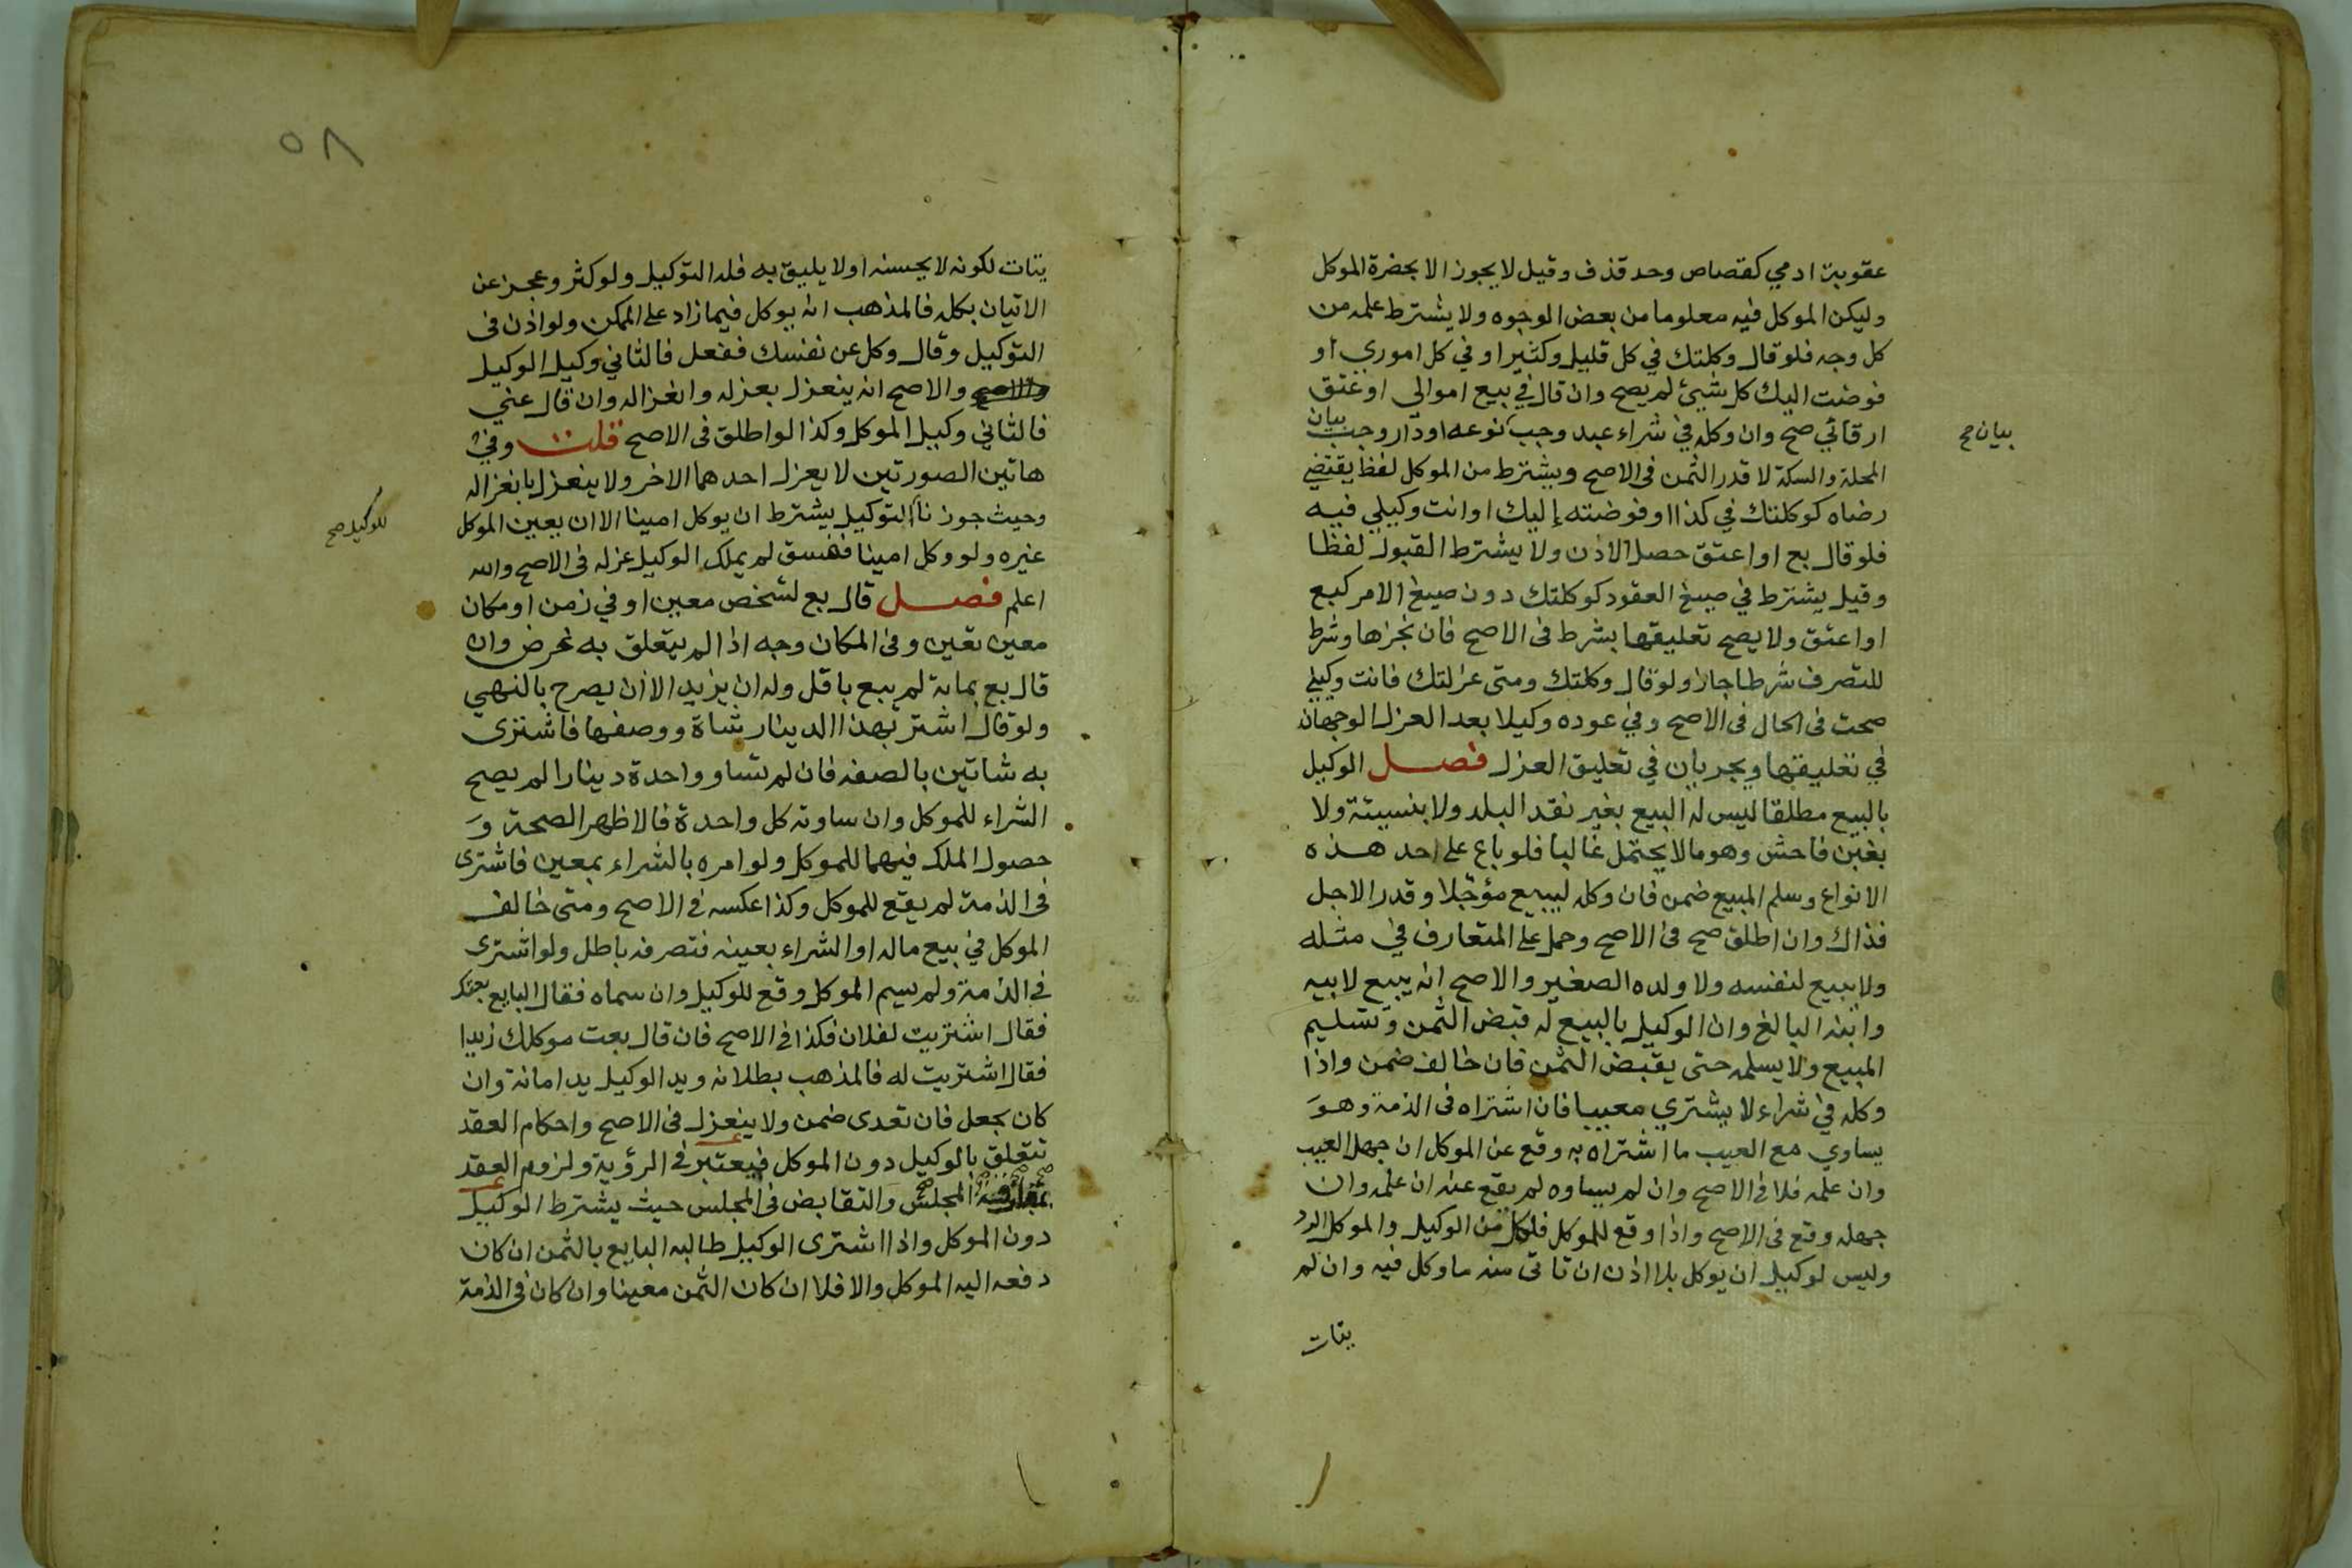 عقوبة ادمي كقصاص وحد قذف وقيل لا يجوز الا بحضرة الموكل
وليكن الموكل فيه معلوما من بعض الوجوه ولا يشترط علمه من
كل وجه فلو قال وكلتك في كل قليل وكثير او في كل اموري او
فوضت اليك كل شيئ لم يصح وان قال في بيع اموالي او عتق
ارقائي صح وان وكله في شراء عبد وجب نوعه او دار وجب بيان
بيان صح
المحلة والسكة لا قدر الثمن في الاصح ويشترط من الموكل لفظ يقتضي
رضاه كوكلتك في كذا او فوضته إليك او انت وكيلي فيه
فلو قال بع او اعتق حصل الاذن ولا يشترط القبول لفظا
وقيل يشترط في صيغ العقود كوكلتك دون صيغ الامر كبع
او اعتق ولا يصح تعليقها بشرط في الاصح فان نجزها وشرط
للتصرف شرطا جاز ولو قال وكلتك ومتى عزلتك فانت وكيلي
صحت في الحال في الاصح وفي عوده وكيلا بعد العزل الوجهان
في تعليقها ويجريان في تعليق العزل فصل الوكيل
بالبيع مطلقا ليس له البيع بغير نقد البلد ولا بنسيئة ولا
بغبن فاحش وهو ما لا يحتمل غالبا فلو باع على احد هذه
الانواع وسلم المبيع ضمن فان وكله ليبيع مؤجلا وقدر الاجل
فذاك وان اطلق صح في الاصح وحمل على المتعارف في مثله
ولا يبيع لنفسه ولا ولده الصغير والاصح انه يبيع لابيه
وابنه البالغ وان الوكيل بالبيع له قبض الثمن وتسليم
المبيع ولا يسلمه حتى يقبض الثمن فان خالف ضمن واذا
وكله في شراء لا يشتري معيبا فان اشتراه في الذمة وهو
يساوي مع العيب ما اشتراه به وقع عن الموكل ان جهل العيب
وان علمه فلا في الاصح وان لم يساوه لم يقع عنه ان علمه وان
جهله وقع في الاصح واذا وقع للموكل فلكل من الوكيل والموكل الرد
وليس لوكيل ان يوكل بلا اذن ان تاتى منه ما وكل فيه وان لم
يتات
٥٨
يتات لكونه لا يحسنه او لا يليق به فله التوكيل ولو كثر وعجز عن
الاتيان بكله فالمذهب انه يوكل فيما زاد على الممكن ولو اذن في
التوكيل وقال وكل عن نفسك ففعل فالثاني وكيل الوكيل
والاصح والاصح انه ينعزل بعزله وانغزاله وان قال عني
فالثاني وكيل الموكل وكذا لو اطلق في الاصح قلت وفي
هاتين الصورتين لا يعزل احدهما الاخر ولا ينعزل بانغزاله
وحيث جوزنا التوكيل يشترط ان يوكل امينا الا ان يعين الموكل
للوكيل صح
غيره ولو وكل امينا ففسق لم يملك الوكيل عزله في الاصح والله
اعلم فصل قال بع لشخص معين او في زمن او مكان
معين تعين وفي المكان وجه اذا لم يتعلق به غرض وان
قال بع بماية لم يبع باقل وله ان يزيد الا ان يصرح بالنهي
ولو قال اشتر بهذا الدينار شاة ووصفها فاشترى
به شاتين بالصفه فان لم تساو واحدة دينارا لم يصح
الشراء للموكل وان ساوته كل واحدة فالاظهر الصحة و
حصول الملك فيهما للموكل ولو امره بالشراء بمعين فاشترى
في الذمة لم يقع للموكل وكذا عكسه في الاصح ومتى خالف
الموكل في بيع ماله او الشراء بعينه فتصرفه باطل ولو اشترى
في الذمة ولم يسم الموكل وقع للوكيل وان سماه فقال البايع بعتك
فقال اشتريت لفلان فكذا في الاصح فان قال بعت موكلك زيدا
فقال اشتريت له فالمذهب بطلانه ويد الوكيل يد امانة وان
كان بجعل فان تعدى ضمن ولا ينعزل في الاصح واحكام العقد
تتعلق بالوكيل دون الموكل فيعتبر في الرؤية ولزوم العقد
بمفارقة المجلس والتقابض في المجلس حيث يشترط الوكيل
دون الموكل واذا اشترى الوكيل طالبه البايع بالثمن ان كان
دفعه اليه الموكل والا فلا ان كان الثمن معينا وان كان في الذمة